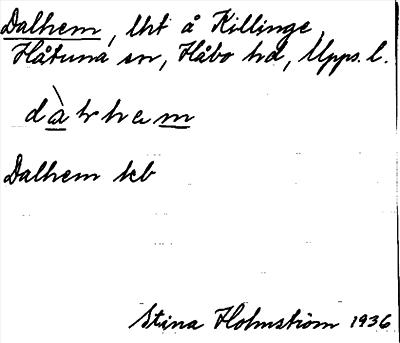 Dalhem, lht å Killinge,
Håtuna sn, Håbo hd, Upps. l.
dàlhem
Dalhem kb
Stina Holmström 1936